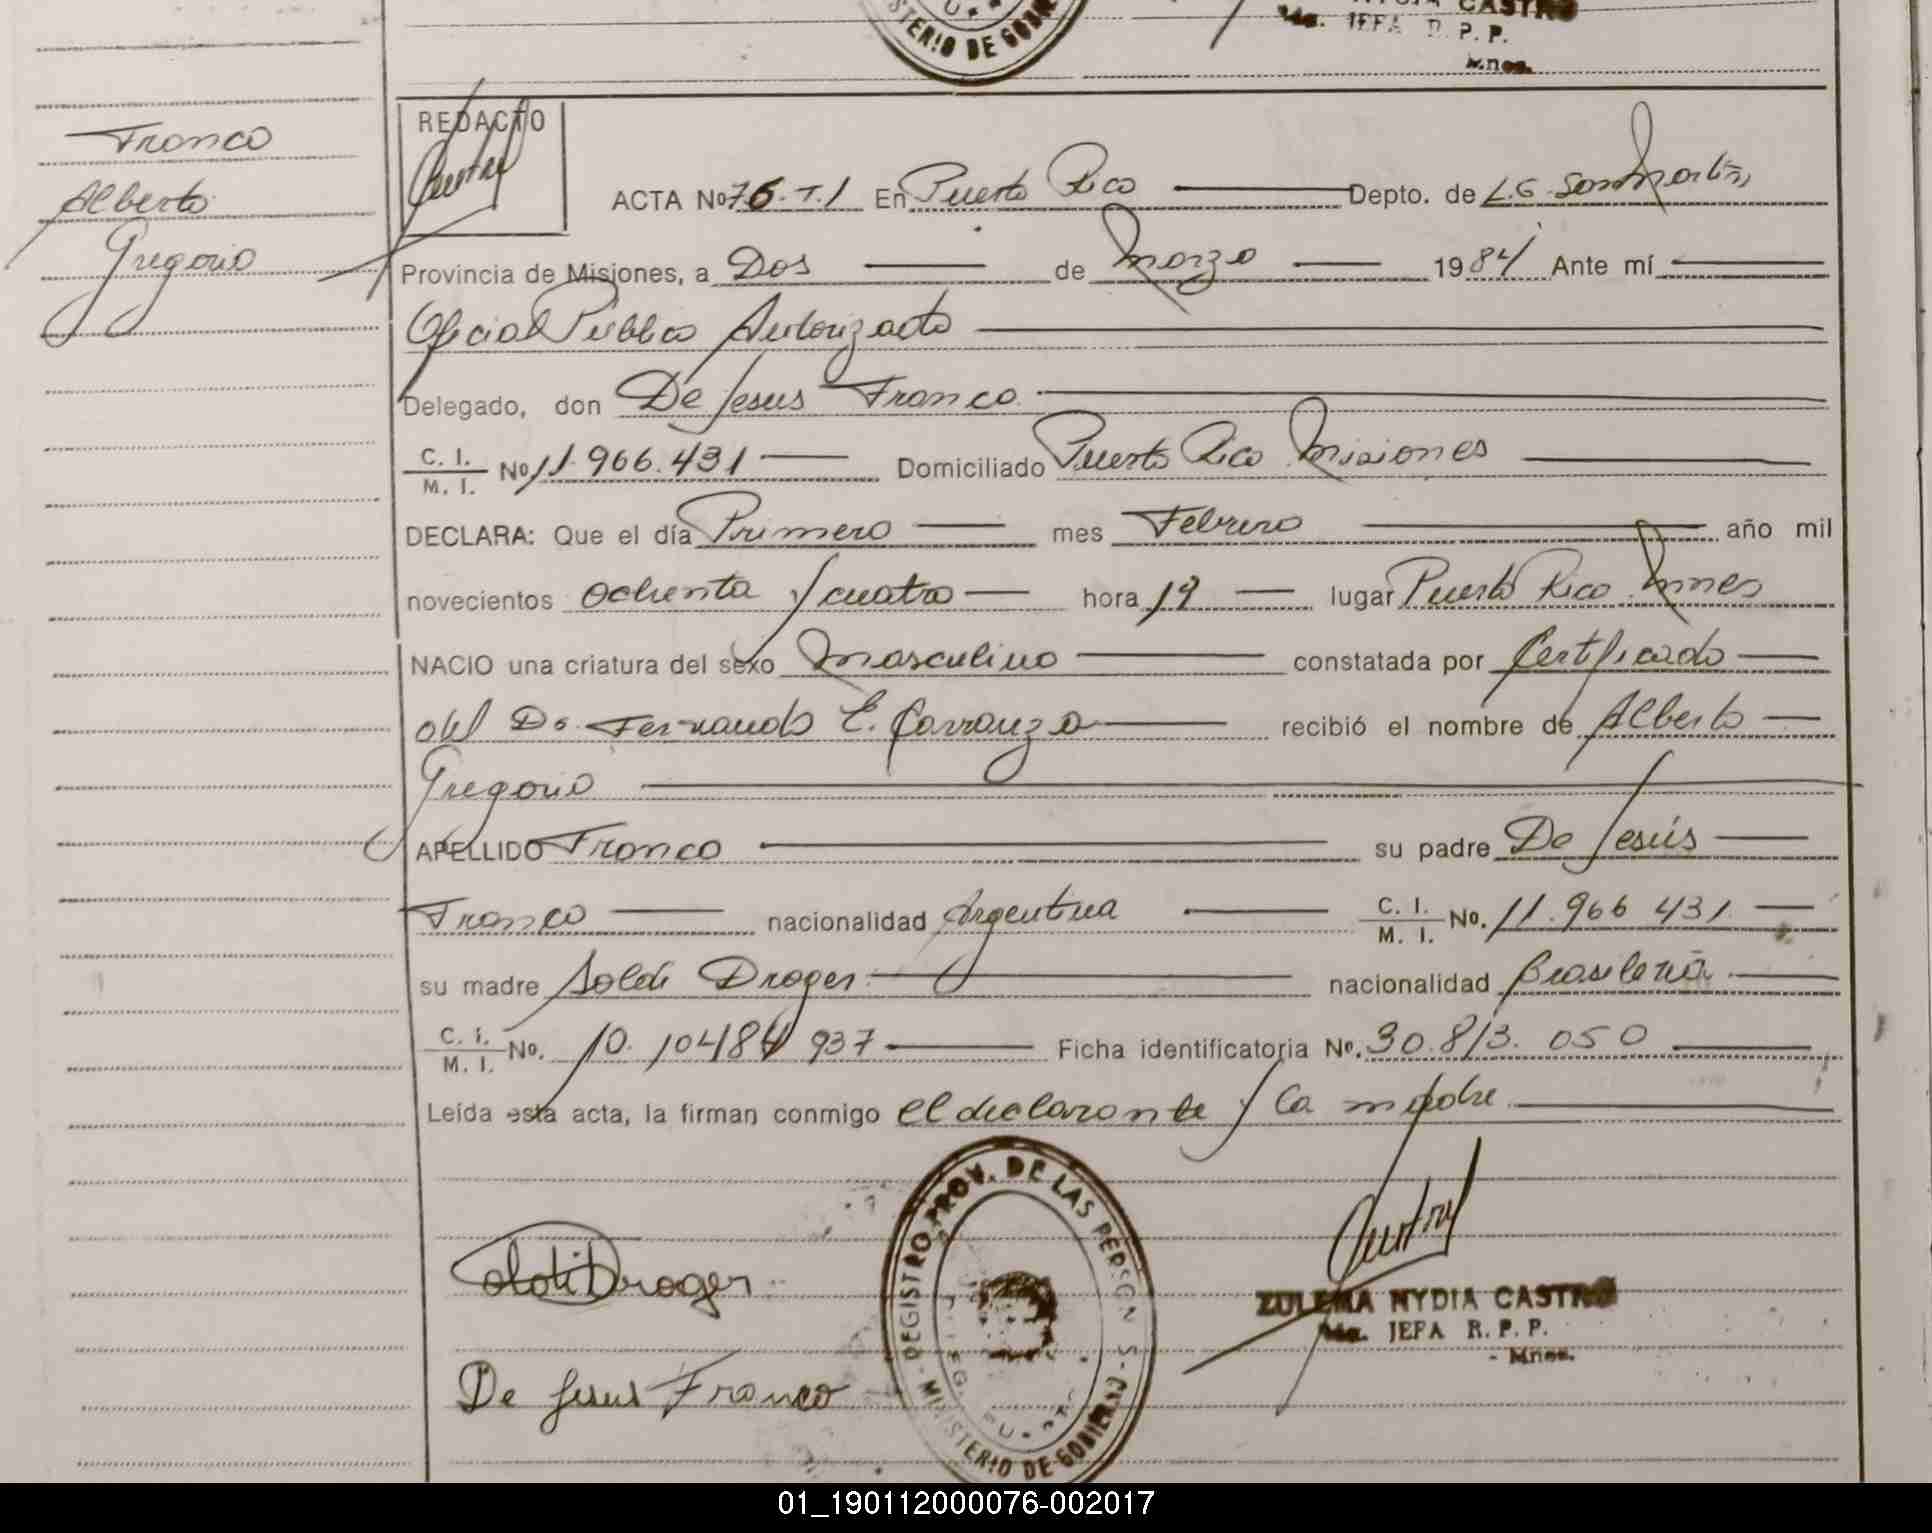 TERIO DE GOBIE
CASTRO
JEFA R. P. P.
Mnes.
Franco
Alberto
Gregorio
REDACTO
ACTA Nº 76. T. 1 En Puerto Rico Depto. de L. G. San Martin
Provincia de Misiones, a Dos de Marzo 1984 Ante mí
Oficial Público Autorizado
Delegado, don De Jesus Franco
C. I. / M. I. Nº 11.966.431 Domiciliado Puerto Rico Misiones
DECLARA: Que el día Primero mes Febrero año mil
novecientos ochenta y cuatro hora 19 lugar Puerto Rico Mnes
NACIO una criatura del sexo Masculino constatada por Certificado
del Dr. Fernando E. Carranza recibió el nombre de Alberto
Gregorio
APELLIDO Franco su padre De Jesús
Franco nacionalidad Argentina C. I. / M. I. No. 11.966 431
su madre Soldi Droger nacionalidad Brasileña
C. I. / M. I. No. 937 Ficha identificatoria Nº. 30.813.050
Leída esta acta, la firman conmigo el declarante y la madre
REGISTRO PROV. DE LAS PERSONAS - MINISTERIO DE GOBIERNO
Droger
ZULEMA NYDIA CASTRO
JEFA R. P. P.
- Mnes.
De Jesus Franco
01_190112000076-002017